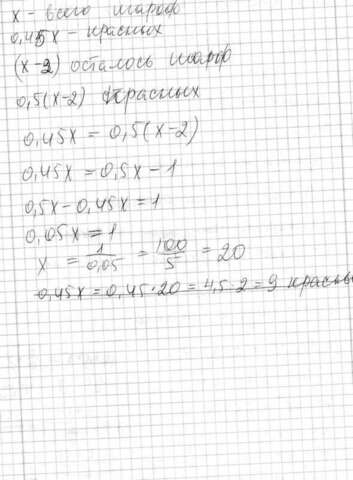 x - всего шаров
0,45x - красных
(x-2) осталось шаров
0,5(x-2) красных
0,45x = 0,5(x-2)
0,45x = 0,5x - 1
0,5x - 0,45x = 1
0,05x = 1
x = 1/0,05 = 100/5 = 20
0,45x = 0,45·20 = 4,5·2 = 9 красных